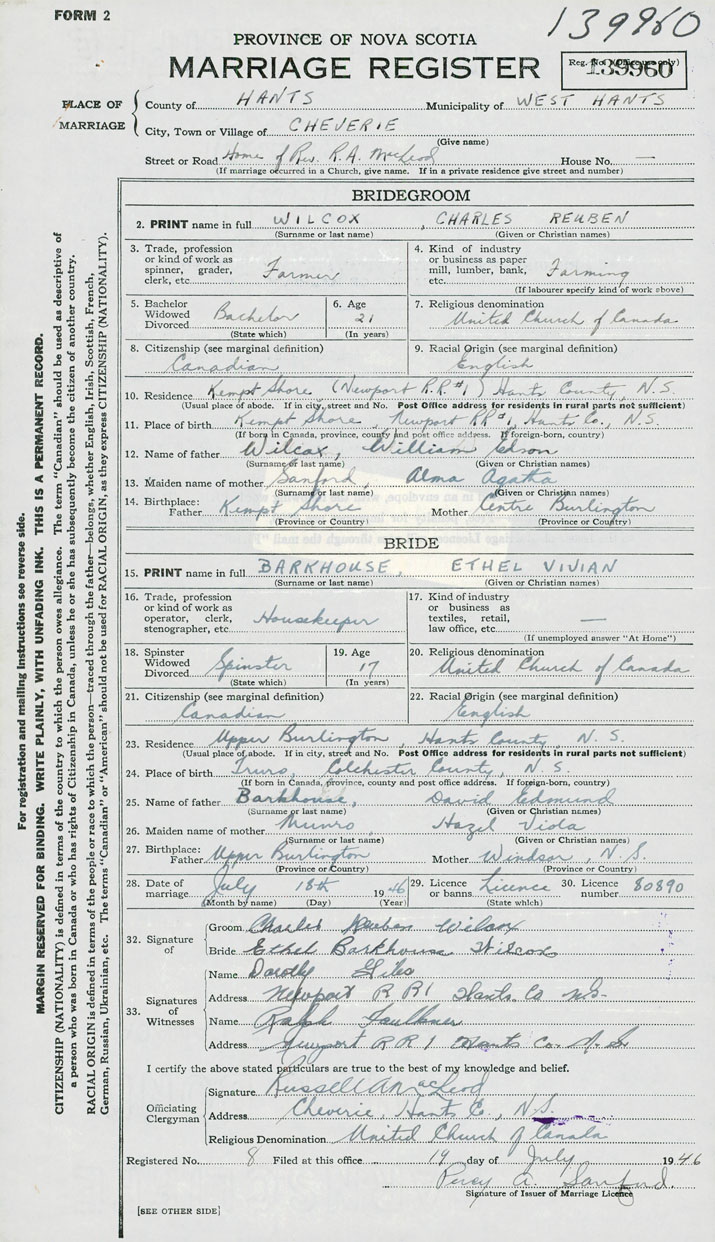 FORM 2
139960
PROVINCE OF NOVA SCOTIA
MARRIAGE REGISTER
Reg. No. (Office use only)
139960
PLACE OF MARRIAGE
County of HANTS Municipality of WEST HANTS
City, Town or Village of CHEVERIE
(Give name)
Street or Road Home of Rev. R. A. MacLeod House No. —
(If marriage occurred in a Church, give name. If in a private residence give street and number)
BRIDEGROOM
2. PRINT name in full WILCOX, CHARLES REUBEN
(Surname or last name) (Given or Christian names)
3. Trade, profession or kind of work as spinner, grader, clerk, etc. Farmer
4. Kind of industry or business as paper mill, lumber, bank, etc. Farming
(If labourer specify kind of work above)
5. Bachelor Widowed Divorced Bachelor
(State which)
6. Age 21
(In years)
7. Religious denomination
United Church of Canada
8. Citizenship (see marginal definition)
Canadian
9. Racial Origin (see marginal definition)
English
10. Residence Kempt Shore (Newport R.R. #1) Hants County, N.S.
(Usual place of abode. If in city, street and No. Post Office address for residents in rural parts not sufficient)
11. Place of birth Kempt Shore, Newport RR #1, Hants Co., N.S.
(If born in Canada, province, county and post office address. If foreign-born, country)
12. Name of father Wilcox, William Edson
(Surname or last name) (Given or Christian names)
13. Maiden name of mother Sanford, Alma Agatha
(Surname or last name) (Given or Christian names)
14. Birthplace: Father Kempt Shore Mother Centre Burlington
(Province or Country) (Province or Country)
BRIDE
15. PRINT name in full BARKHOUSE, ETHEL VIVIAN
(Surname or last name) (Given or Christian names)
16. Trade, profession or kind of work as operator, clerk, stenographer, etc. Housekeeper
17. Kind of industry or business as textiles, retail, law office, etc. —
(If unemployed answer "At Home")
18. Spinster Widowed Divorced Spinster
(State which)
19. Age 17
(In years)
20. Religious denomination
United Church of Canada
21. Citizenship (see marginal definition)
Canadian
22. Racial Origin (see marginal definition)
English
23. Residence Upper Burlington, Hants County, N. S.
(Usual place of abode. If in city, street and No. Post Office address for residents in rural parts not sufficient)
24. Place of birth Truro, Colchester County, N. S.
(If born in Canada, province, county and post office address. If foreign-born, country)
25. Name of father Barkhouse, David Edmund
(Surname or last name) (Given or Christian names)
26. Maiden name of mother Munro, Hazel Viola
(Surname or last name) (Given or Christian names)
27. Birthplace: Father Upper Burlington Mother Windsor, N.S.
(Province or Country) (Province or Country)
28. Date of marriage July 18th 1946
(Month by name) (Day) (Year)
29. Licence or banns Licence
(State which)
30. Licence number 80890
32. Signature of
Groom Charles Reuben Wilcox
Bride Ethel Barkhouse Wilcox
33. Signatures of Witnesses
Name Dorothy Giles
Address Newport R R 1 Hants Co N S
Name Ralph Faulkner
Address Newport R R 1 Hants Co. N. S
I certify the above stated particulars are true to the best of my knowledge and belief.
Officiating Clergyman
Signature Russell A MacLeod
Address Cheverie, Hants C., N.S.
Religious Denomination United Church of Canada
Registered No. 8 Filed at this office 19 day of July 1946
Percy A. Sanford
Signature of Issuer of Marriage Licence
[SEE OTHER SIDE]
For registration and mailing instructions see reverse side.
MARGIN RESERVED FOR BINDING. WRITE PLAINLY, WITH UNFADING INK. THIS IS A PERMANENT RECORD.
CITIZENSHIP (NATIONALITY) is defined in terms of the country to which the person owes allegiance. The term "Canadian" should be used as descriptive of
a person who was born in Canada or who has rights of Citizenship in Canada, unless he or she has subsequently become the citizen of another country.
RACIAL ORIGIN is defined in terms of the people or race to which the person—traced through the father—belongs, whether English, Irish, Scottish, French,
German, Russian, Ukrainian, etc. The terms "Canadian" or "American" should not be used for RACIAL ORIGIN, as they express CITIZENSHIP (NATIONALITY).